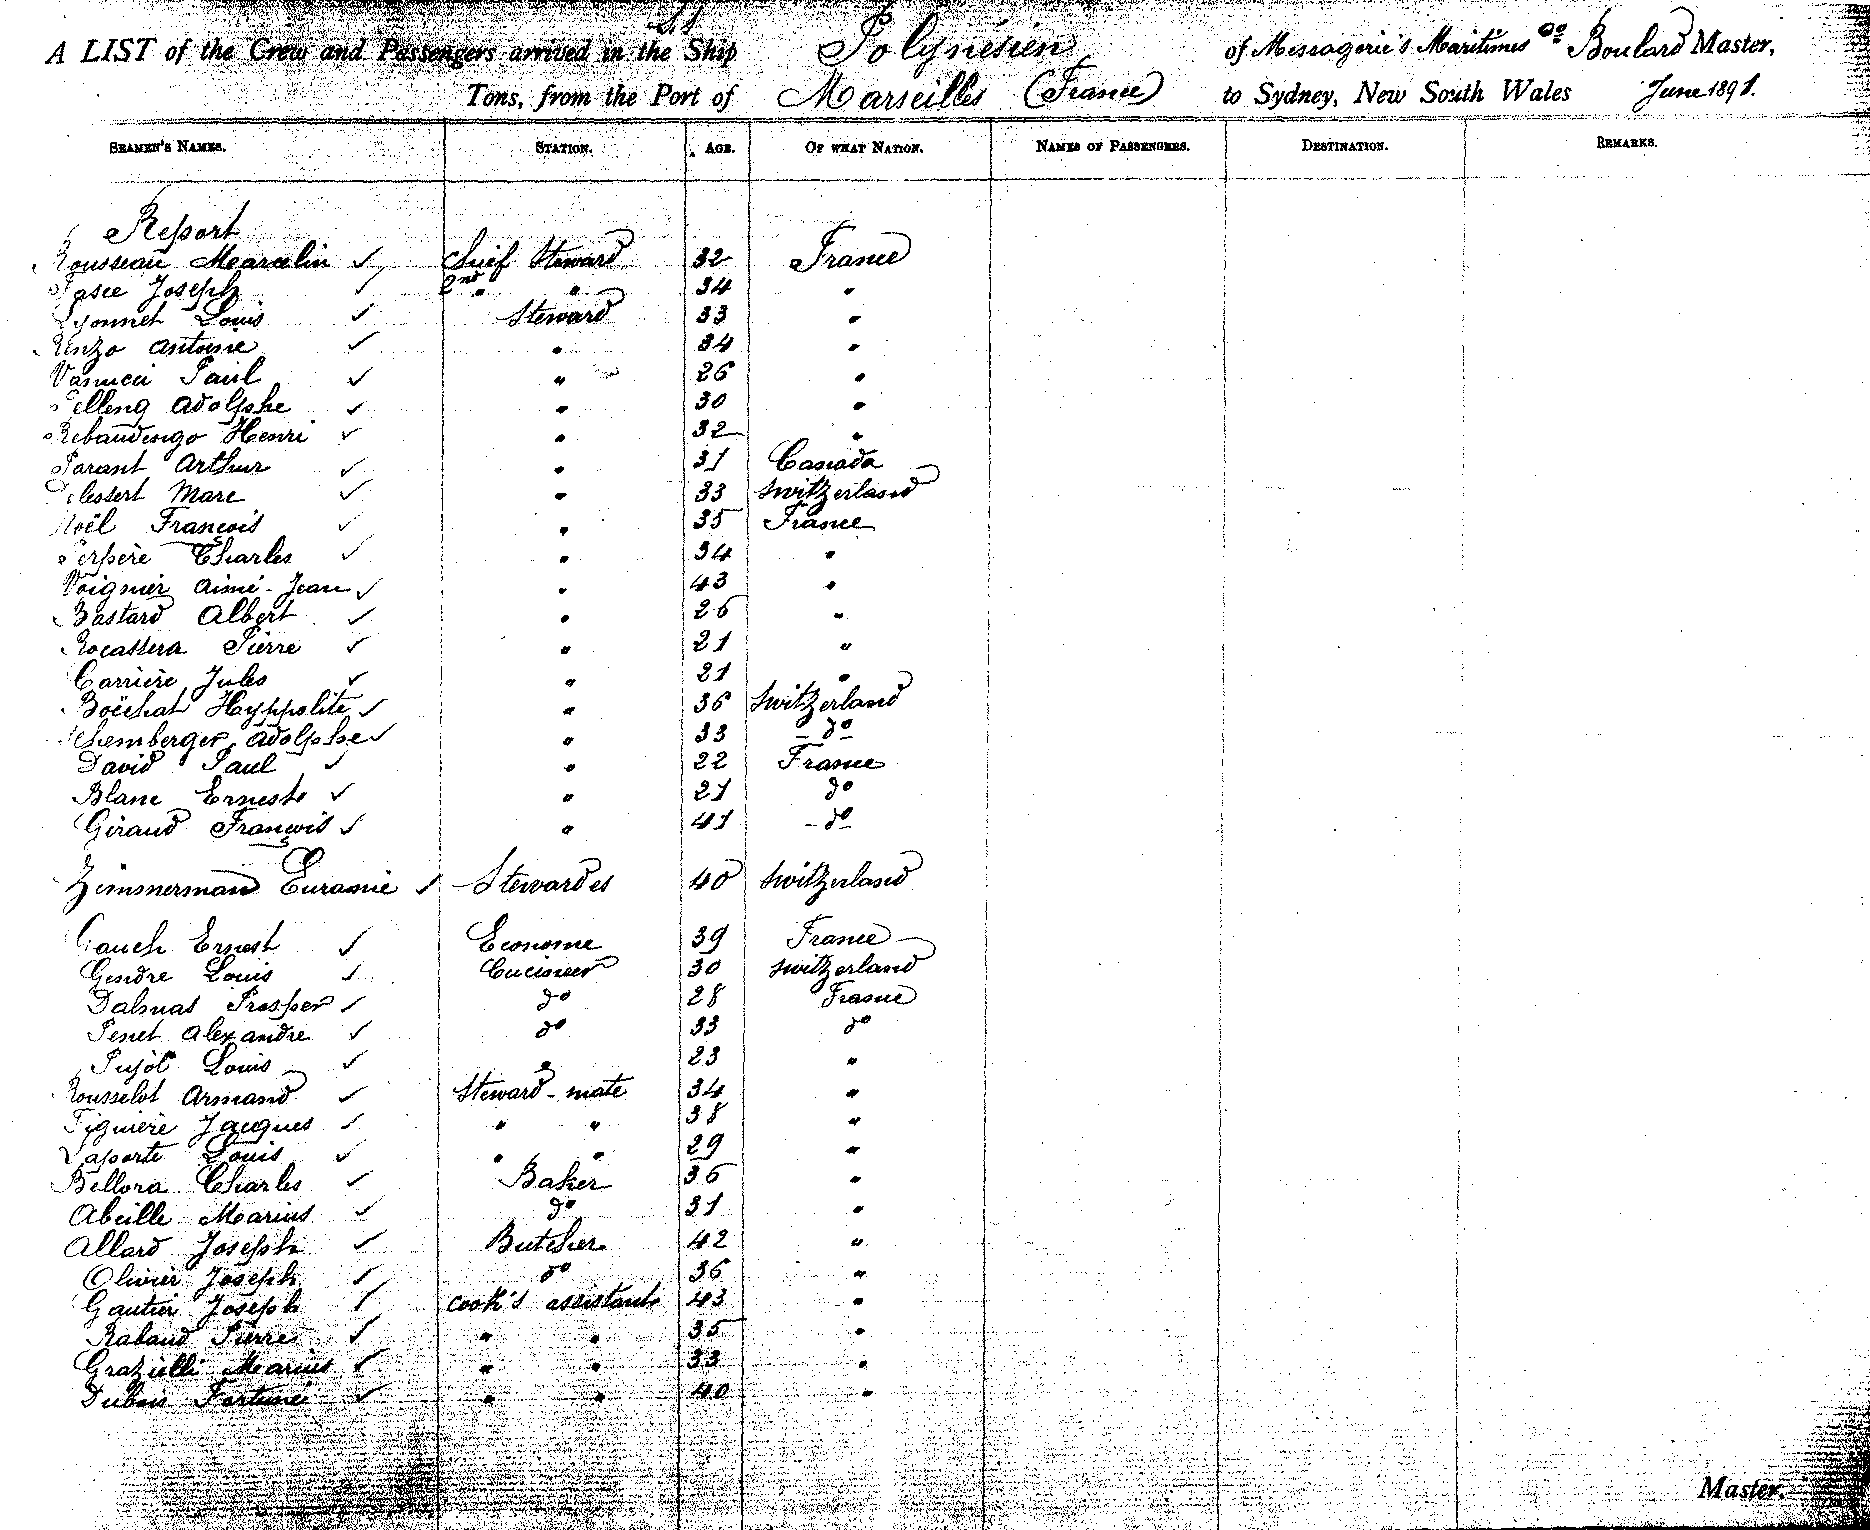 S.S.
A LIST of the Crew and Passengers arrived in the Ship Polynesien of Messagerie's Maritimes Co Boulard Master,
Tons, from the Port of Marseilles (France) to Sydney, New South Wales June 1891.
SEAMEN'S NAMES. STATION. AGE. OF WHAT NATION. NAMES OF PASSENGERS. DESTINATION. REMARKS.
Report
Rousseau Marcelin ✓ Chief Steward 32 France
Joseph ✓ 2nd " " 34 "
Lyonnet Louis ✓ Steward 33 "
Renzo Antoine ✓ " 34 "
Vanucci Paul ✓ " 26 "
Pelleng Adolphe ✓ " 30 "
Rebaudengo Henri ✓ " 32 "
Parant Arthur ✓ " 31 Canada
Marc ✓ " 33 Switzerland
Noël François ✓ " 35 France
Perpère Charles ✓ " 34 "
Voignier Aimé-Jean ✓ " 43 "
Bastard Albert ✓ " 26 "
Rocassera Pierre ✓ " 21 "
Carrière Jules ✓ " 21 "
Boëchat Hyppolite ✓ " 36 Switzerland
Adolphe ✓ " 33 - do -
David Paul ✓ " 22 France
Blanc Ernest ✓ " 21 do
Giraud François ✓ " 41 - do -
Zimmerman Euranie ✓ Stewardes 40 Switzerland
Gauch Ernest ✓ Econome 39 France
Gendre Louis ✓ Cucineer 30 Switzerland
Dalmas Prosper ✓ do 28 France
Penet Alexandre ✓ do 33 do
Pujol Louis ✓ " 23 "
Rousselot Armand ✓ Steward-mate 34 "
Figuière Jacques ✓ " " 38 "
Laporte Louis ✓ " " 29 "
Bellora Charles ✓ Baker 36 "
Abeille Marius ✓ do 31 "
Allard Joseph ✓ Butcher 42 "
Olivier Joseph ✓ do 36 "
Gautier Joseph ✓ cook's assistant 43 "
Rabaud Pierre ✓ " " 35 "
Grazielli Marius ✓ " " 33 "
Dubois Fortuné ✓ " " 40 "
Master.